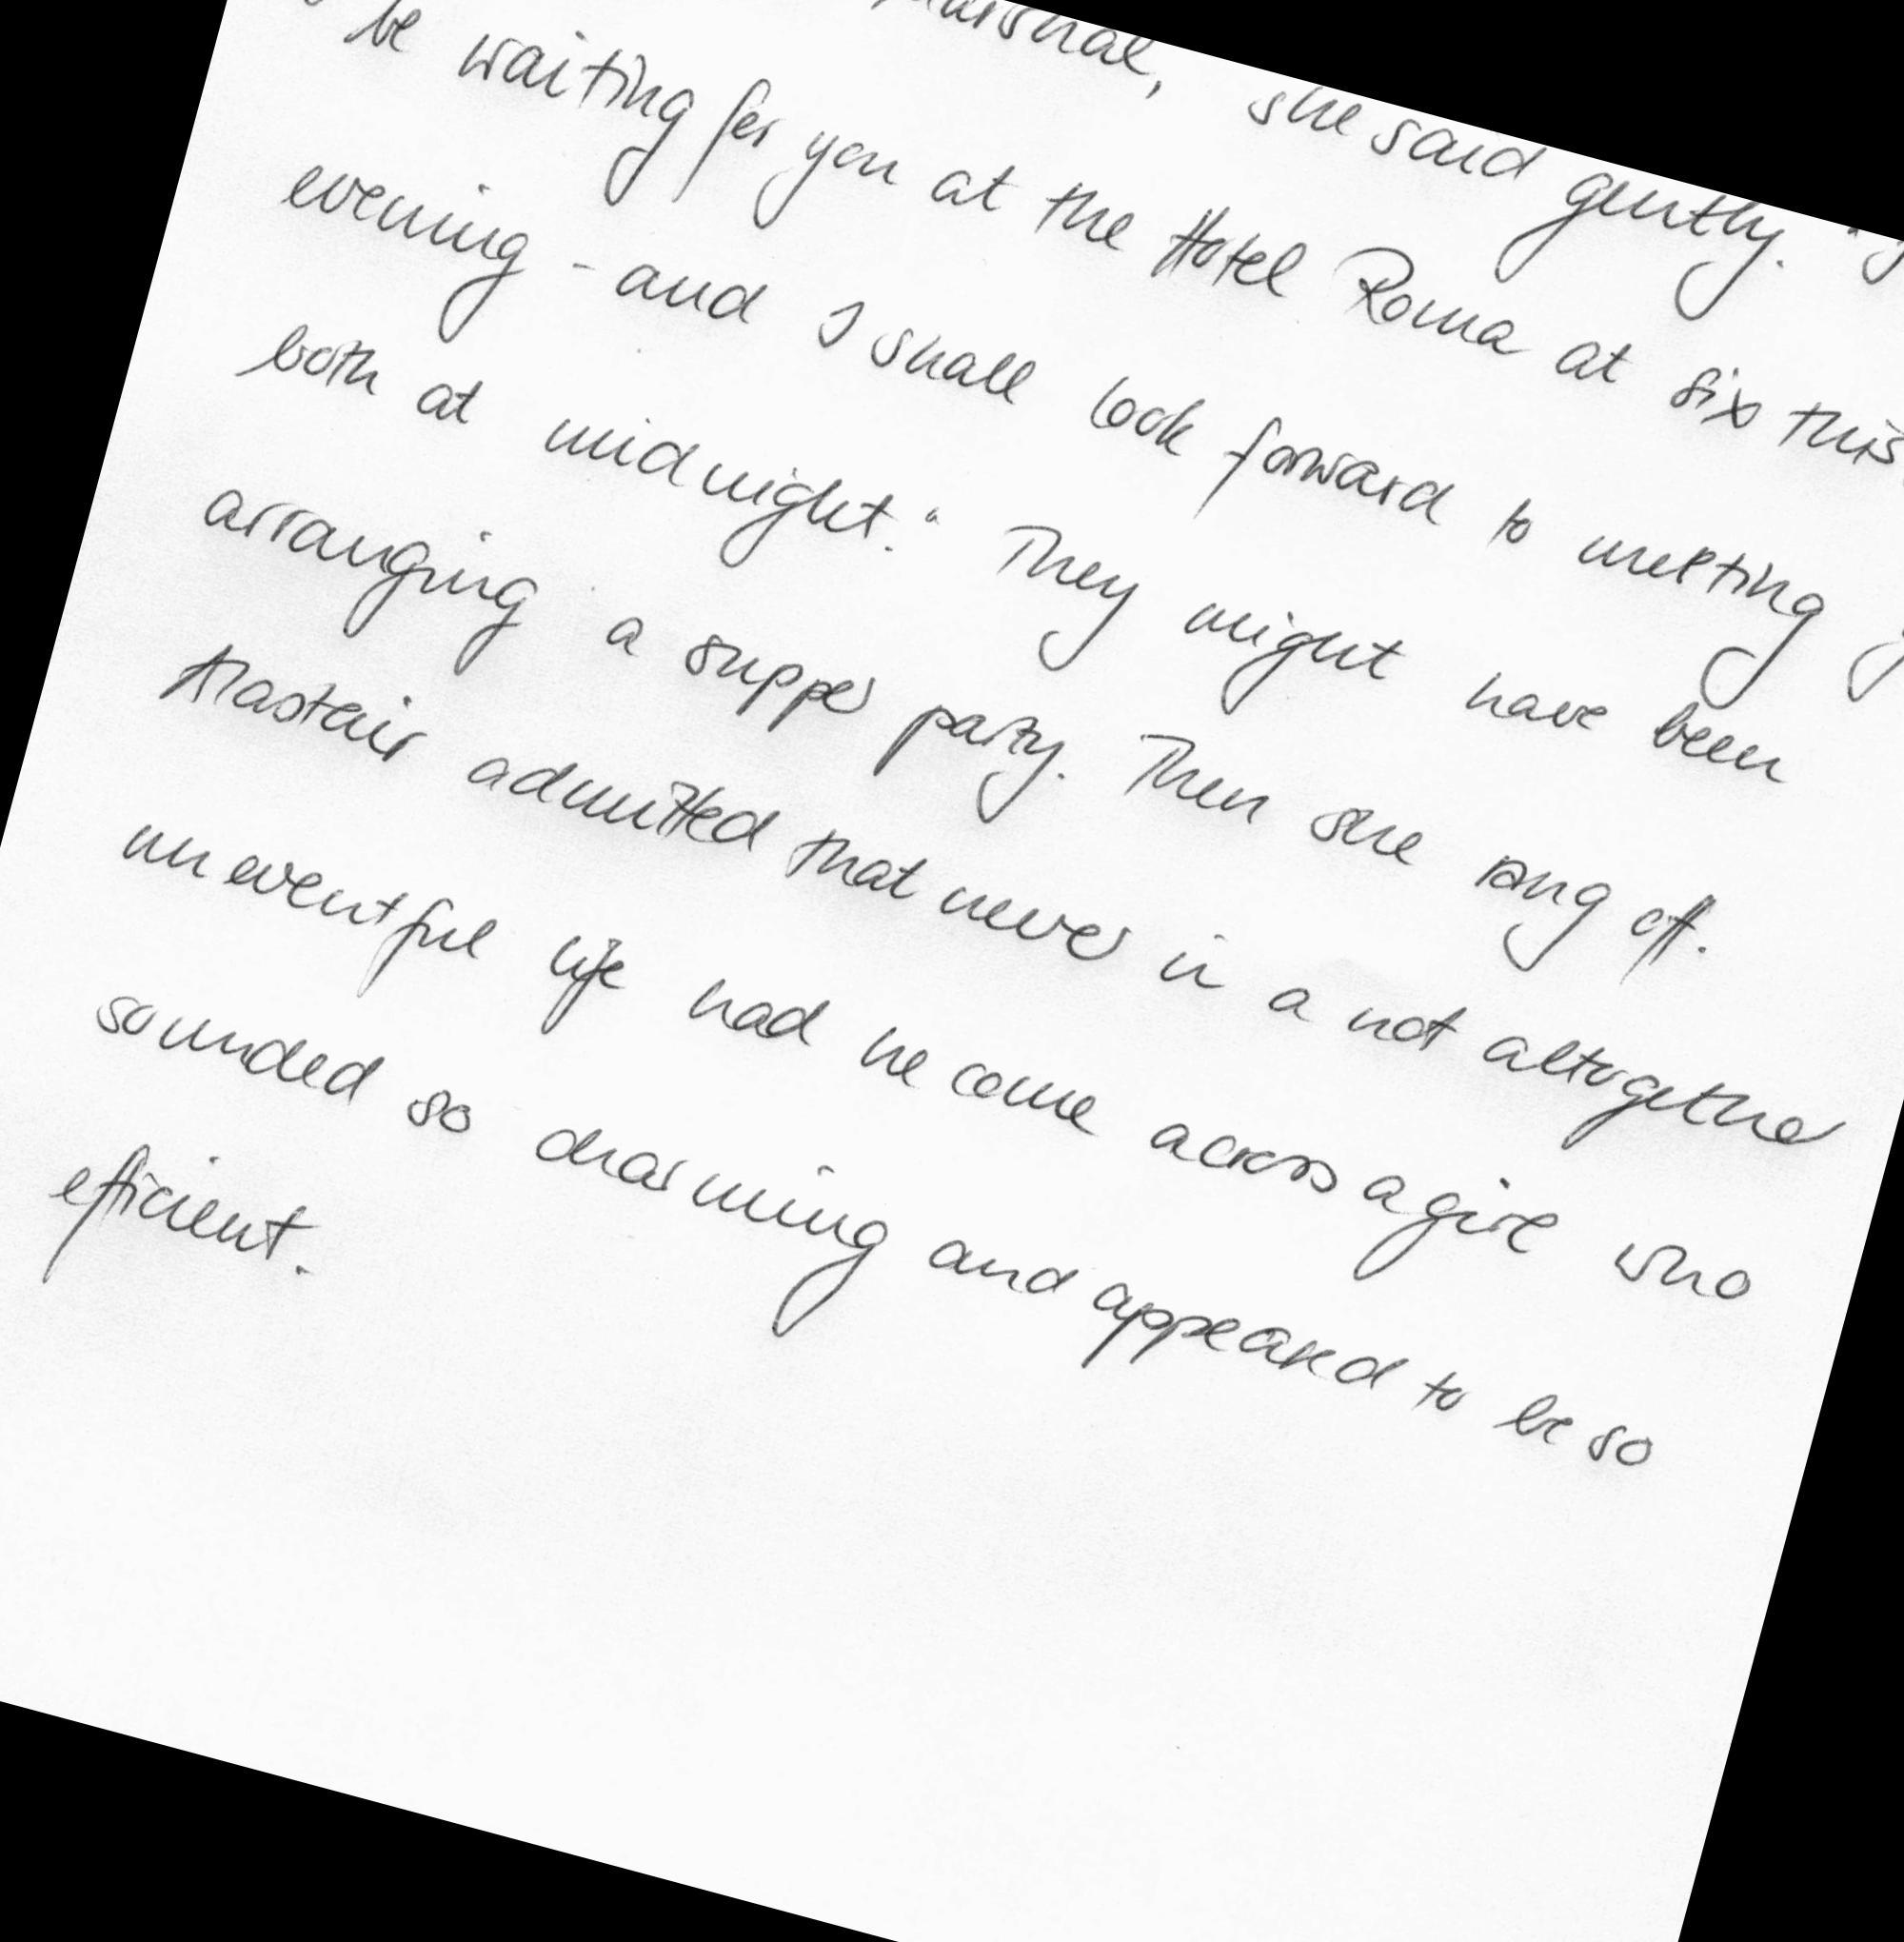 marshal, she said gently. "
be waiting for you at the Hotel Roma at six this
evening - and I shall look forward to meeting
both at midnight." They might have been
arranging a supper party. Then she rang off.
Alastair admitted that never in a not altogether
uneventful life had he come across a girl who
sounded so charming and appeared to be so
efficient.